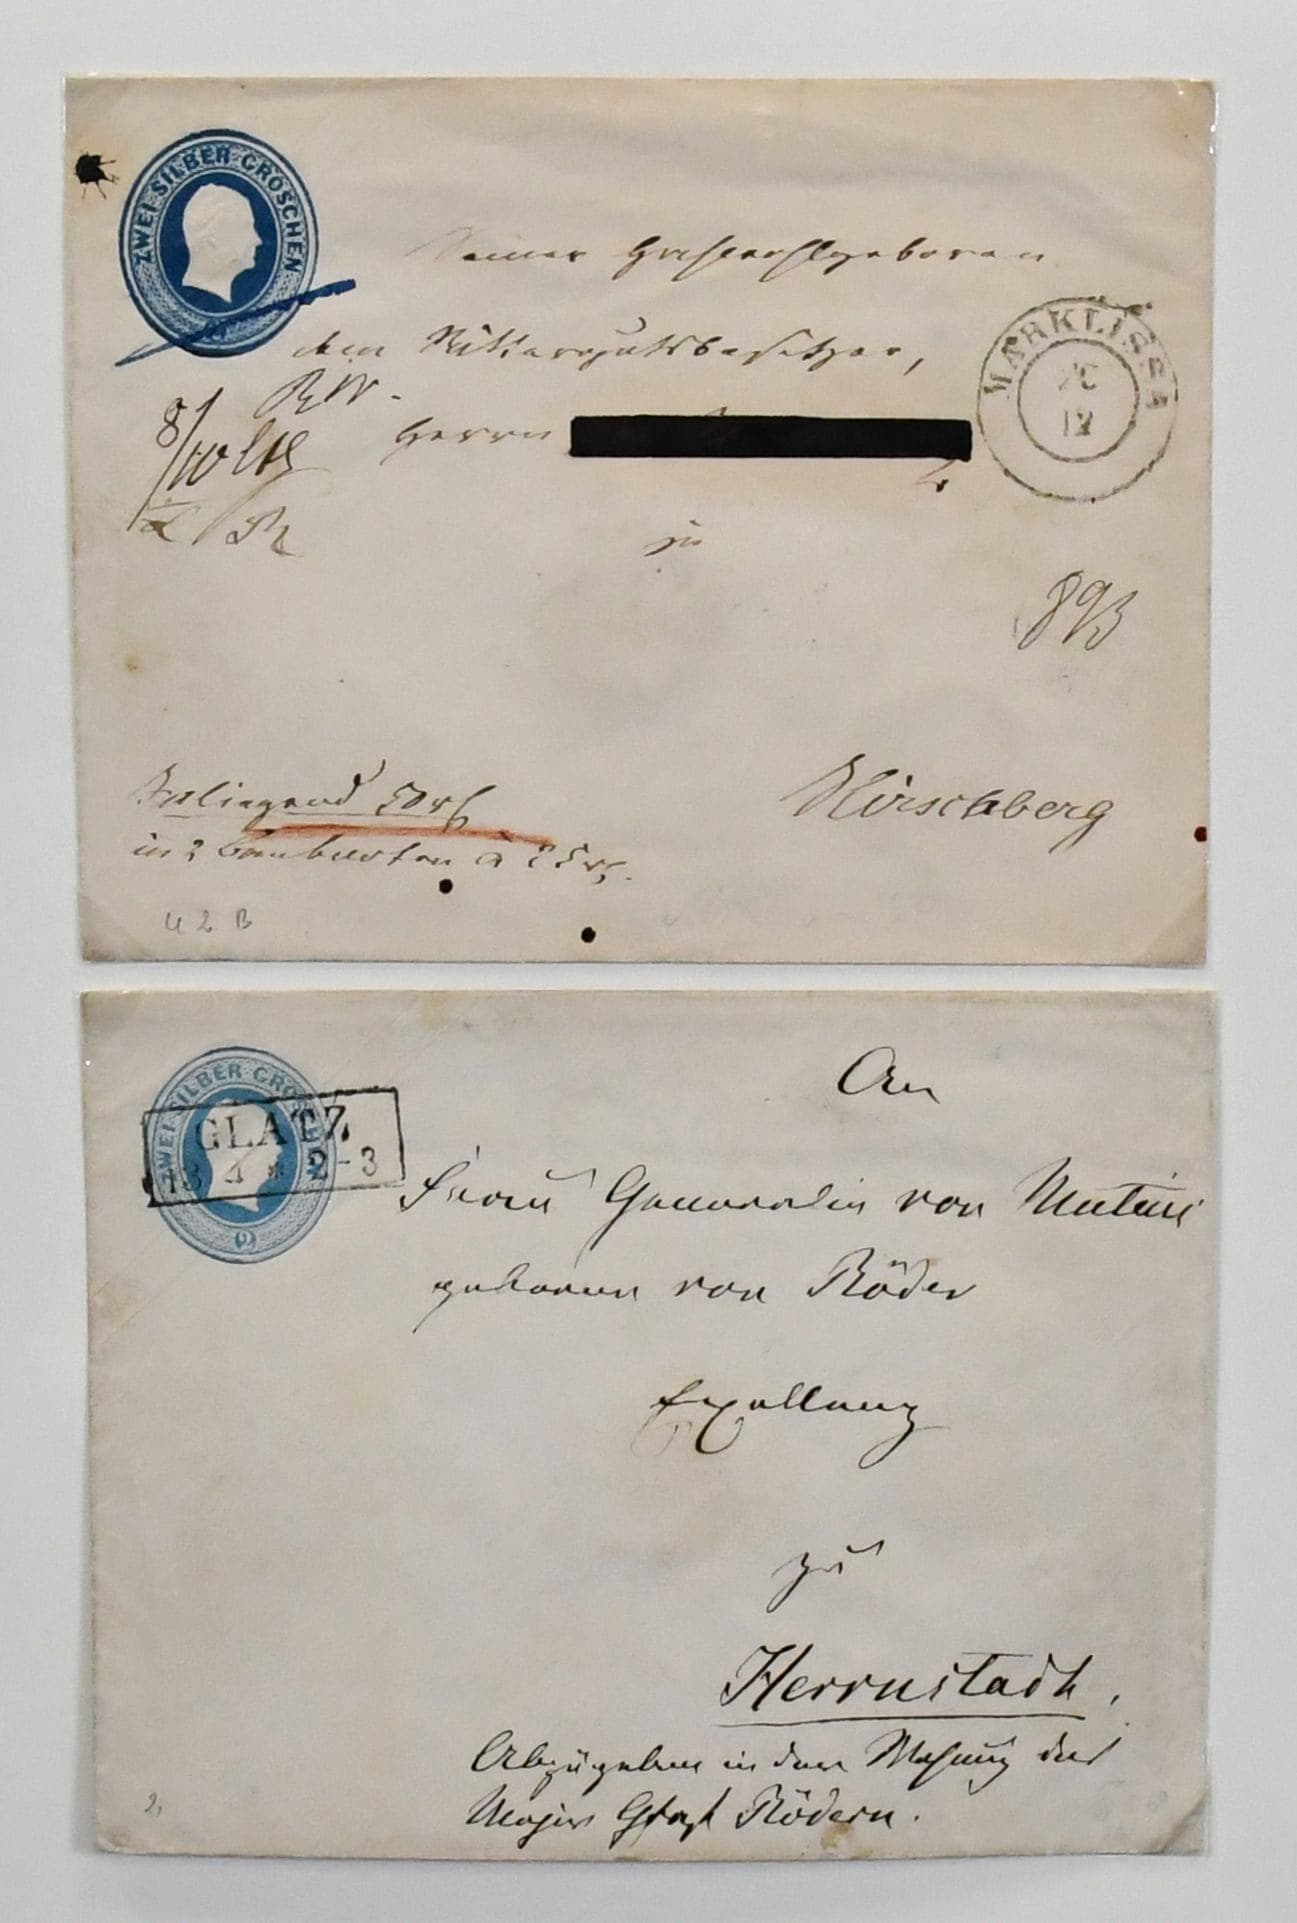 ZWEI SILBER GROSCHEN
Seiner Hochwohlgeboren
dem Rittergutsbesitzer,
Herrn
MARKLISSA
12
zu
893
Hirschberg
Inliegend 50 rℓ
in 2 à 25 rℓ.
U 2 B
ZWEI SILBER GROSCHEN
2
GLATZ
13 4 * 2-3
An
Frau Generalin von Mutius
geboren von Röder
Exellenz
zu
Herrnstadt.
Abzugeben in der Wohnung des
Major Graf Rödern.
2,